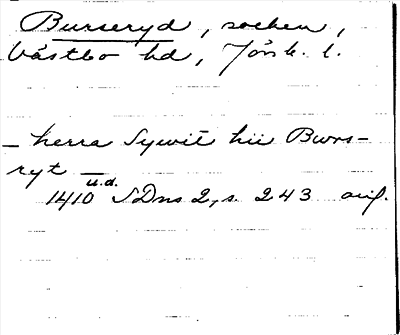 Burseryd, socken,
Västbo hd, Jönk. l.
_ herra Sywit hii Bwrs-
ryt _
u.d.
1410 SDns 2, s. 243 avs.